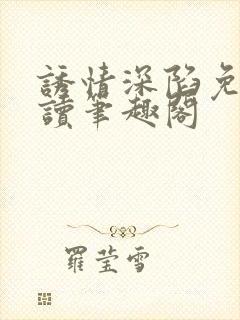 誘情深陷免
讀筆趣閣
羅莹雪